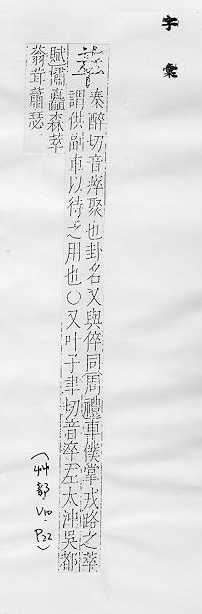 字彙
秦醉切音瘁聚也卦名又與倅同周禮車僕掌戎路之萃
謂供副車以待之用也○又叶子聿切音卒左太沖吳都
賦橚矗森萃
蓊茸蕭瑟
(艸部 V10. P22)